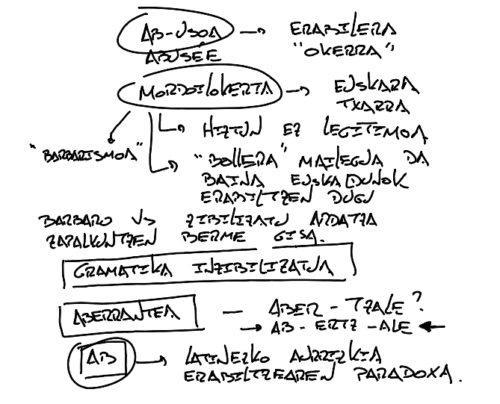 AB-USOA → ERABILERA
ABUSÉE "OKERRA"
MORDOILOKERIA → EUSKARA
TXARRA
"BARBARISMOA" → HIZTUN EZ LEGITIMOA
→ "BOLLERA" MAILEGUA DA
BAINA EUSKALDUNOK
ERABILTZEN DUGU
BARBARO VS ZIBILIZATU ARDATZA
ZAPALKUNTZEN BERME GISA.
GRAMATIKA INZIBILIZATUA
ABERRANTEA — ABER-TZALE?
→ AB-ERTZ-ALE ←
AB → LATINEZKO AURRIZKIA
ERABILTZEAREN PARADOXA.